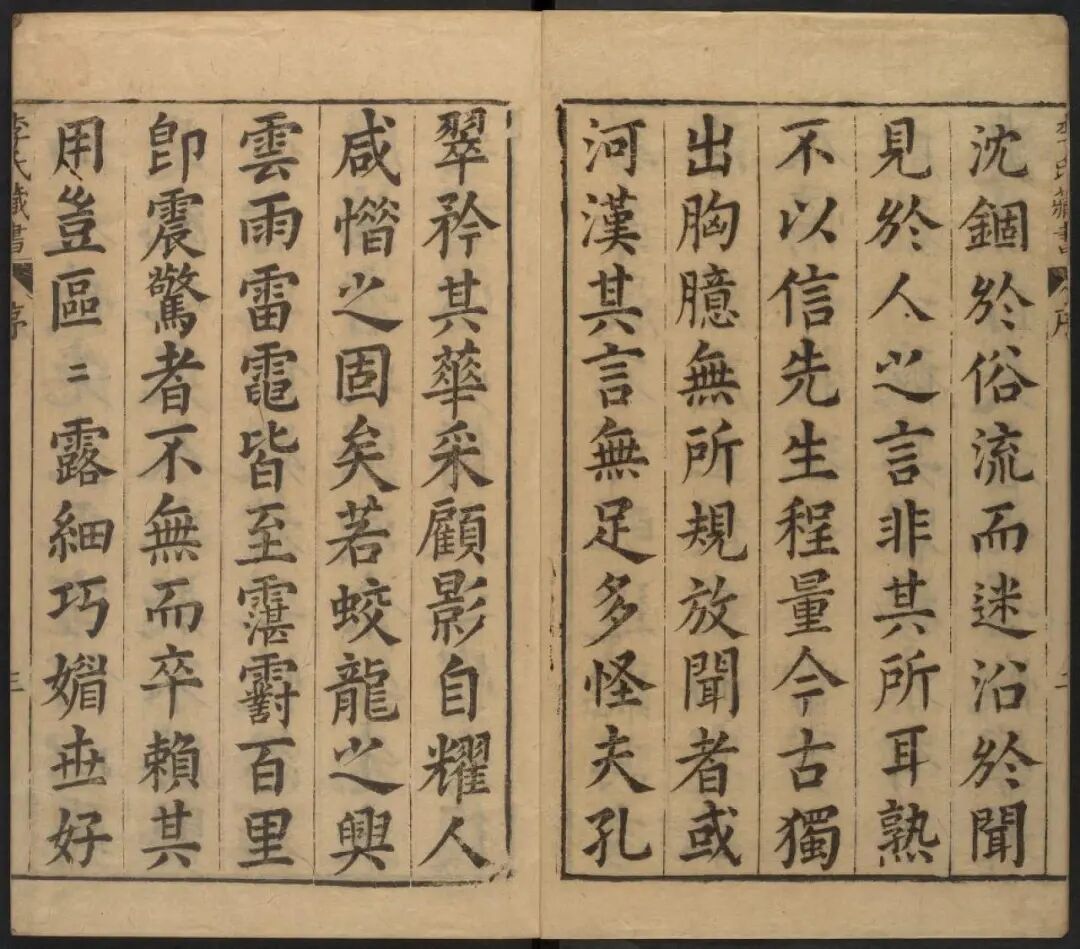 沈錮於俗流而迷沿於聞
見於人之言非其所耳熟
不以信先生程量今古獨
出胸臆無所規放聞者或
河漢其言無足多怪夫孔
翠矜其華采顧影自耀人
咸惜之固矣若蛟龍之興
雲雨雷電皆至霮䨴百里
即震驚者不無而卒賴其
用豈區〻露細巧媚世好
李氏藏書
序
三